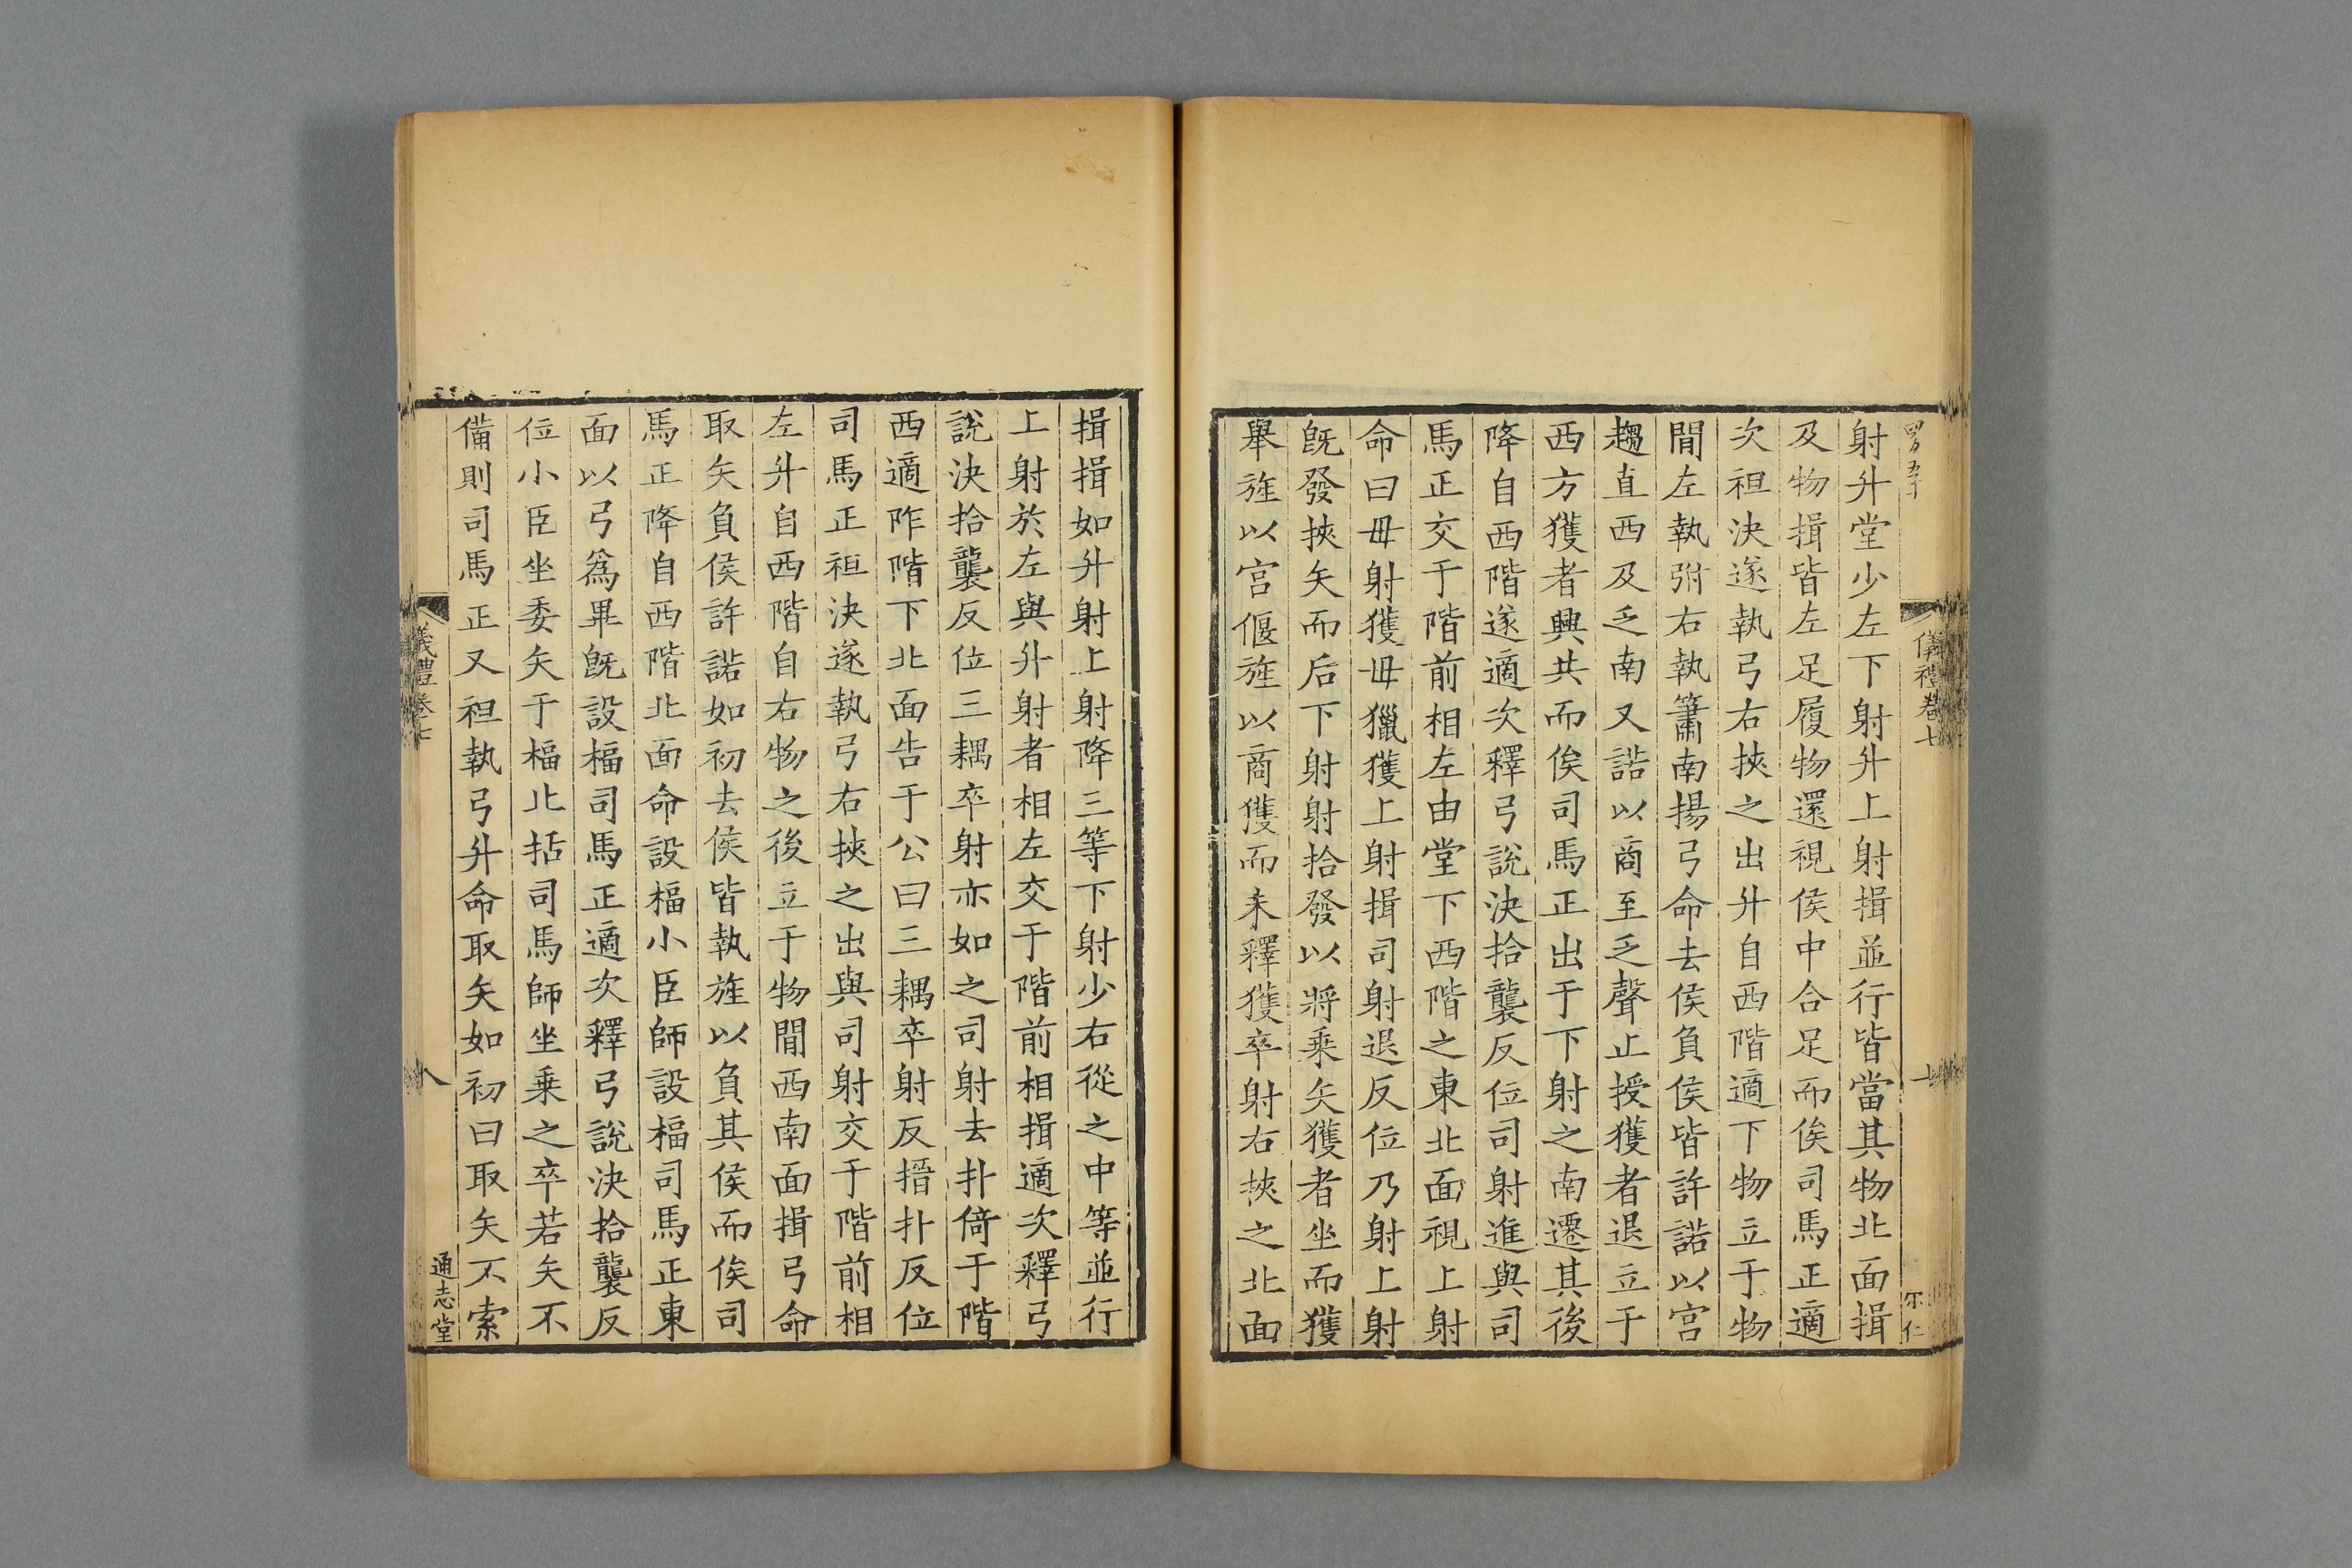 射升堂少左下射升上射揖並行皆當其物北面揖
及物揖皆左足履物還視侯中合足而俟司馬正適
次袒決遂執弓右挾之出升自西階適下物立于物
間左執弣右執簫南揚弓命去侯負侯皆許諾以宮
趨直西及乏南又諾以商至乏聲止授獲者退立于
西方獲者興共而俟司馬正出于下射之南還其後
降自西階遂適次釋弓說決拾襲反位司射進與司
馬正交于階前相左由堂下西階之東北面視上射
命曰毋射獲毋獵獲上射揖司射退反位乃射上射
旣發挾矢而后下射射拾發以將乘矢獲者坐而獲
舉旌以宮偃旌以商獲而未釋獲卒射右挾之北面
儀禮卷七
揖揖如升射上射降三等下射少右從之中等並行
上射於左與升射者相左交于階前相揖適次釋弓
說決拾襲反位三耦卒射亦如之司射去扑倚于階
西適阼階下北面告于公曰三耦卒射反搢扑反位
司馬正袒決遂執弓右挾之出與司射交于階前相
左升自西階自右物之後立于物間西南面揖弓命
取矢負侯許諾如初去侯皆執旌以負其侯而俟司
馬正降自西階北面命設楅小臣師設楅司馬正東
面以弓爲畢旣設楅司馬正適次釋弓說決拾襲反
位小臣坐委矢于楅北括司馬師坐乘之卒若矢不
備則司馬正又袒執弓升命取矢如初曰取矢不索
儀禮卷七
八
通志堂